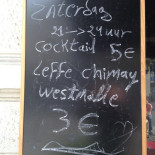 Zaterdag
21 → 24 uur
cocktail 5€
Leffe chimay
westmalle
3€